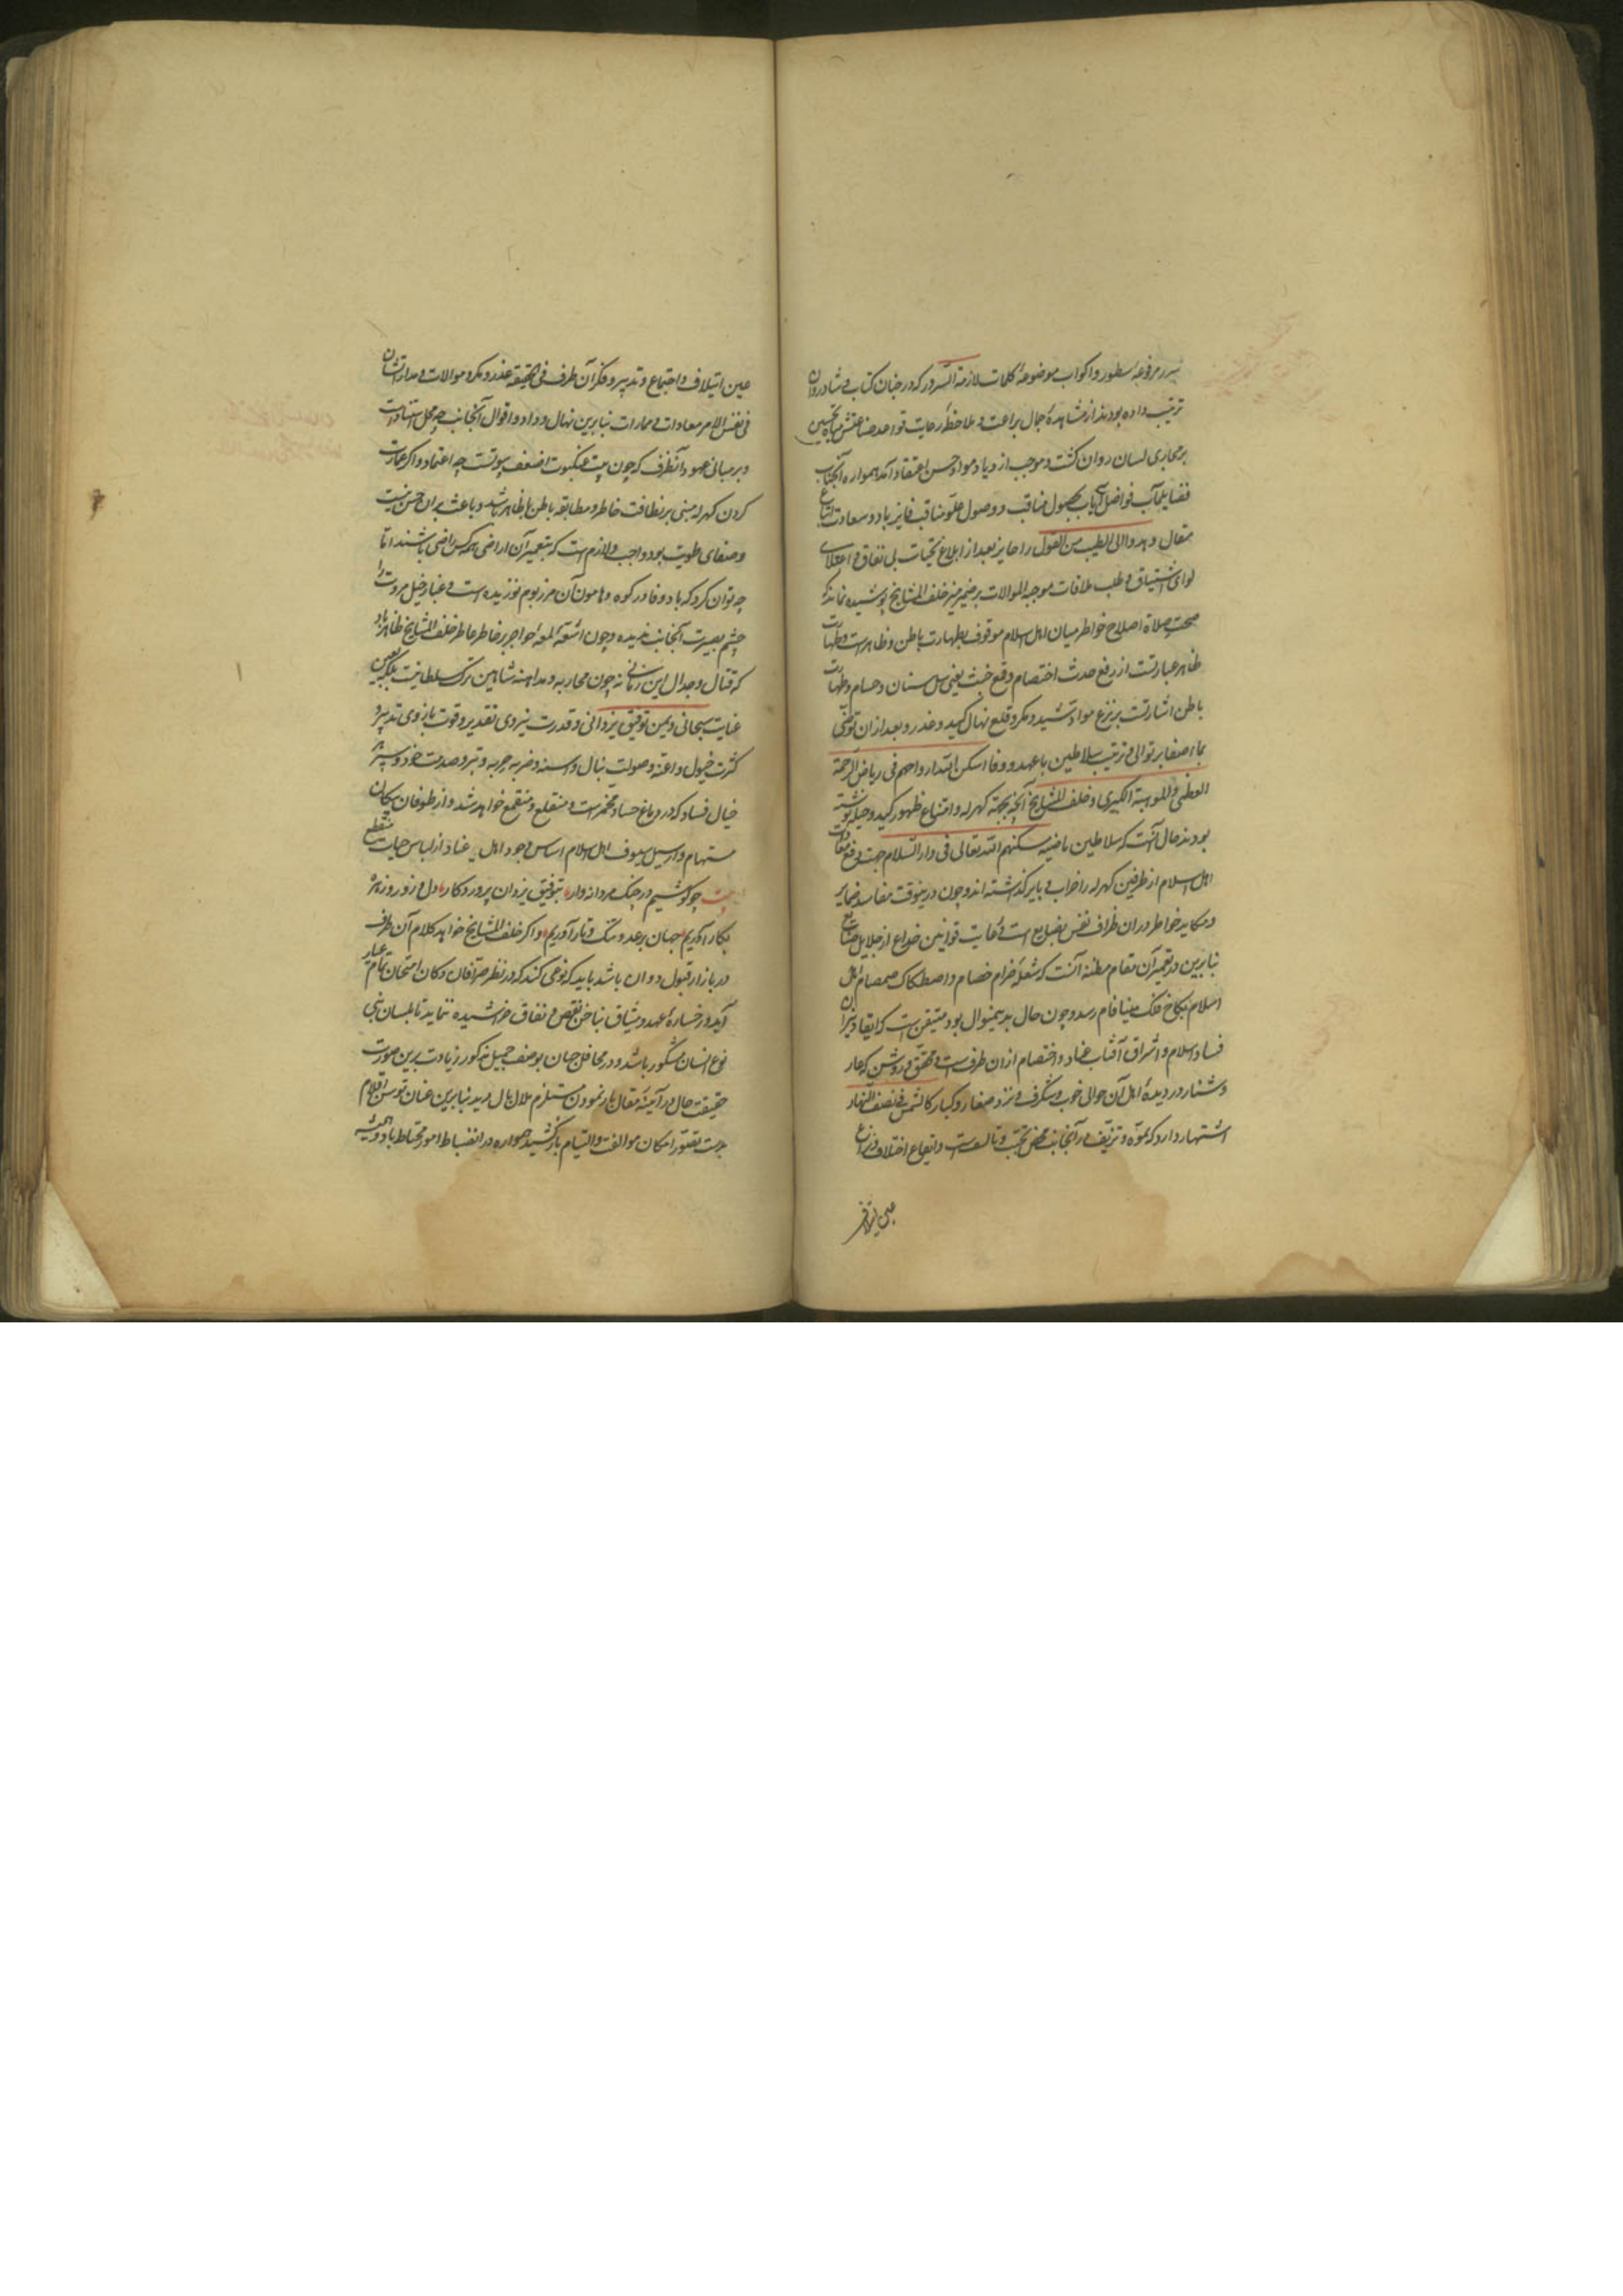 سرر مرفوعه سطور و اکواب موضوعهٔ کلمات لازمة السرور که در جنان کتاب و شادروان
ترتیب داده بودند از مشاهدهٔ جمال براعت و ملاحظهٔ رعایت قواعد صناعتش میاه تحسین
بر مجاری لسان روان کشت و موجب ازدیاد مواد حسن اعتقاد آمد همواره آنجناب
فضایلمآب فواضل ایاب بحصول مناقب و وصول علو مناقب فایز باد و سعادت
مقال وهدوا الی الطیب من القول را حایز بعد از ابلاغ تحیات بی نفاق و اعتلای
لوای اشتیاق و طلب ملاقات موجبه الموالات بر ضمیر منیر خلف المشایخ پوشیده نماند که
صحت صلاة اصلاح خواطر میان اهل اسلام موقوف بطهارت باطن و ظاهرست و طهارت
ظاهر عبارتست از رفع حدث اختصام و قلع خبث یعنی سل سنان و حسام و طهارت
باطن اشارتست بر نزع مواد تشیید و مکر و قلع نهال کید و غدر و بعد از ان توضی
بماء صفا بر توالی و ترتیب سلاطین با عهد و وفا اسکن الله ارواحهم فی ریاض الرحمة
العظمی والموهبة الکبری و خلف المشایخ آنچه بجهة کهرله و امتناع ظهور کید و حیله نوشته
بودند حال آنست که سلاطین ماضیه اسکنهم الله تعالی فی دار السلام جهت رفع
اهل اسلام از طرفین کهرله را خراب و بایر کذاشته اند و چون درینوقت مفاسد ضمایر
و مکاید خواطر در ان طرف نفس بفیل است و رعایت قوانین خداع از جلایل صنایع
بنابرین در تعمیر آن مقام مظنه آنست که شعلهٔ ضرام خصام و اصطکاک صمصام اهل
اسلام بکاخ فلک مینا فام رسد و چون حال بدینمنوال بود متیقن است که ایقاد نیران
فساد اسلام و اشراق آفتاب عناد و اختصام از ان طرف است و محقق و روشن که عار
و شنار در دیدهٔ اهل آن حوالی خوب و شکرف و نزد صغار و کبار کالشمس فی نصف النهار
اشتهار دارد که تموه و تزیف در آنجانب محض تحبب و تالفست و ایقاع اختلاف و نزاع
عین ایتلاف
عین ایتلاف و اجتماع و تدبیر و فکر آن طرف فی الحقیقه غدر و مکر و موالات و مدارایشان
فی نفس الامر معادات و ممارات بنابرین نهال وداد و اقوال آنجانب چه محل استنادات
و بر مبانی عهود آنطرف که چون بیت عنکبوت اضعف بیوتست چه اعتماد و اکر عمارت
کردن کهرله مبنی بر نظافت خاطر و مطابقه باطن با ظاهر باشد و باعث بران حسن نیت
و صفای طویت بود واجب و لازم است که بتعمیر آن اراضی همه کس راضی باشند اما
چه توان کرد که باد وفا در کوه و هامون آن مرز بوم نوزیده است و غبار خیل مروت را
چشم بصیرت آنجانب ندیده و چون اشعهٔ لمعه احوا بر خاطر عاطر خلف المشایخ ظاهر باد
که قتال و جدال این زمانی نه چون محاربه و مداهنه شاهین ترک سلطانیست بلکه بیمن
عنایت سبحانی و یمن توفیق یزدانی و قدرت نیروی تقدیر و قوت بازوی تدبیر و
کثرت خیول و اعنه و صولت نبال و اسنه و ضربه حربه و تبر و صدمت خود و سپر
خیال فساد که در دماغ حساد مخمرست منقلع و منقمع خواهد شد و از طوفان پیکان
سهام و از سیل سیوف اهل اسلام اساس وجود اهل عناد از لباس حیات منقطع
بیت چو کوشیم در جنک مردانه وار بتوفیق یزدان پروردکار دل و زور و زهره
بکار آوریم جهان بر عدو تنک و تار آوریم و اکر خلف المشایخ خواهد کلام آن طرف
در بازار قبول روان باشد باید که نوعی کند که در نظر صرافان دکان امتحان تمام عیار
آید و رخسارهٔ عهد و میثاق بناخن نقض و نفاق خراشیده ننماید تا بلسان بنی
نوع انسان مشکور باشد و در محافل جهان بوصف جمیل مذکور زیادت برین صورت
حقیقت حال در آینهٔ مقال باز نمودن مستلزم ملال بال دید بنابرین عنان توسن اقلام
بدست تصور امکان موالفت و التیام باز کشید همواره در انضباط امور محتاط باد و همیشه